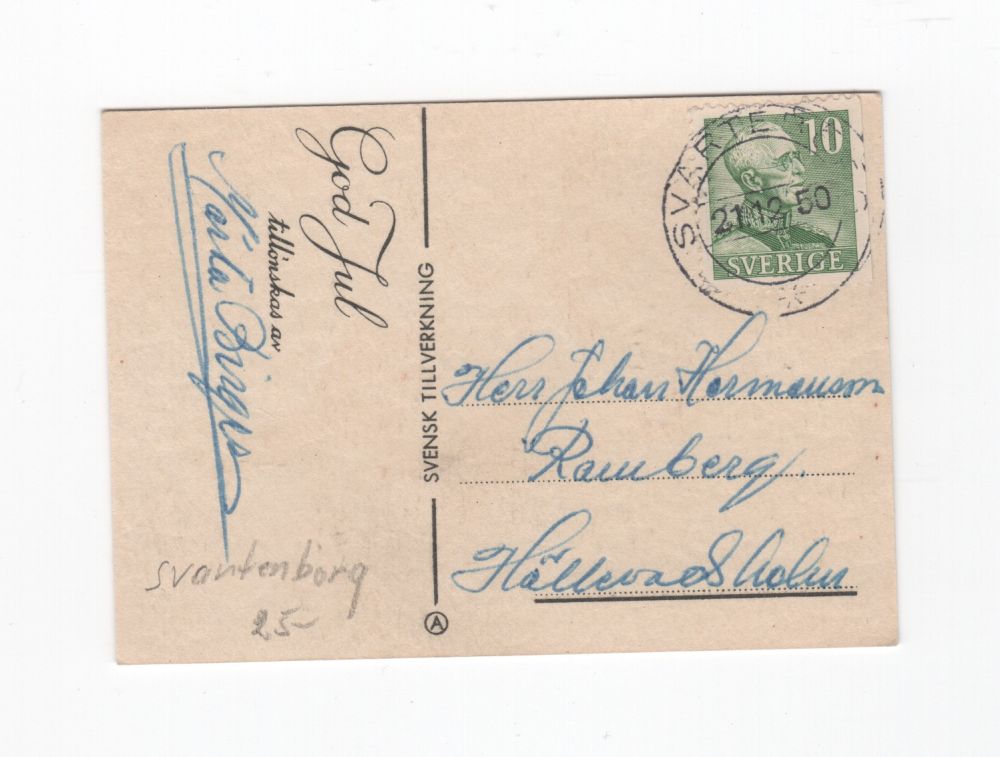 God Jul
tillönskas av
Märta Birger
SVENSK TILLVERKNING
A
10
SVERIGE
21.12.50
Herr Johan Hermansson
Ramberg.
Hällevadsholm
svantenborg
25-